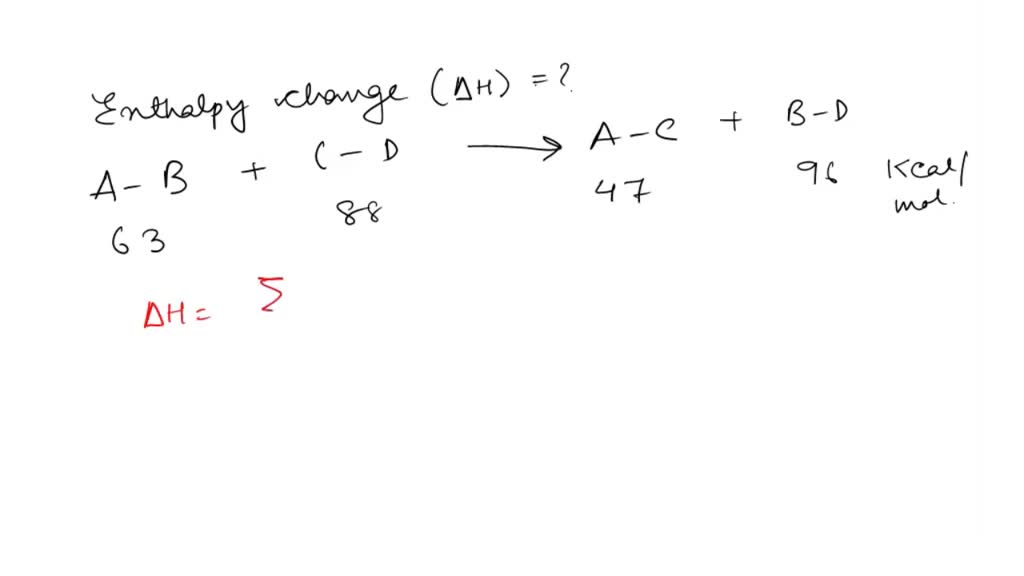 Enthalpy change (ΔH) = ?
A - B + C - D ⟶ A - C + B - D
63 88 47 96 Kcal/mol.
ΔH = Σ